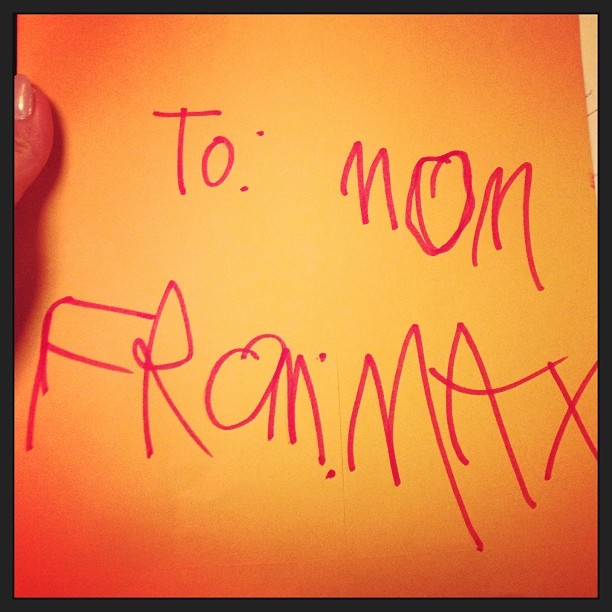 To: mom
FROm: MAX